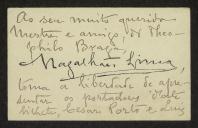 Ao seu muito querido
Mestre e amigo, Dr Theo-
philo Braga
Magalhães Lima
toma a liberdade de apre-
sentar os portadores d'este
bilhete, Cesar Porto e Luiz